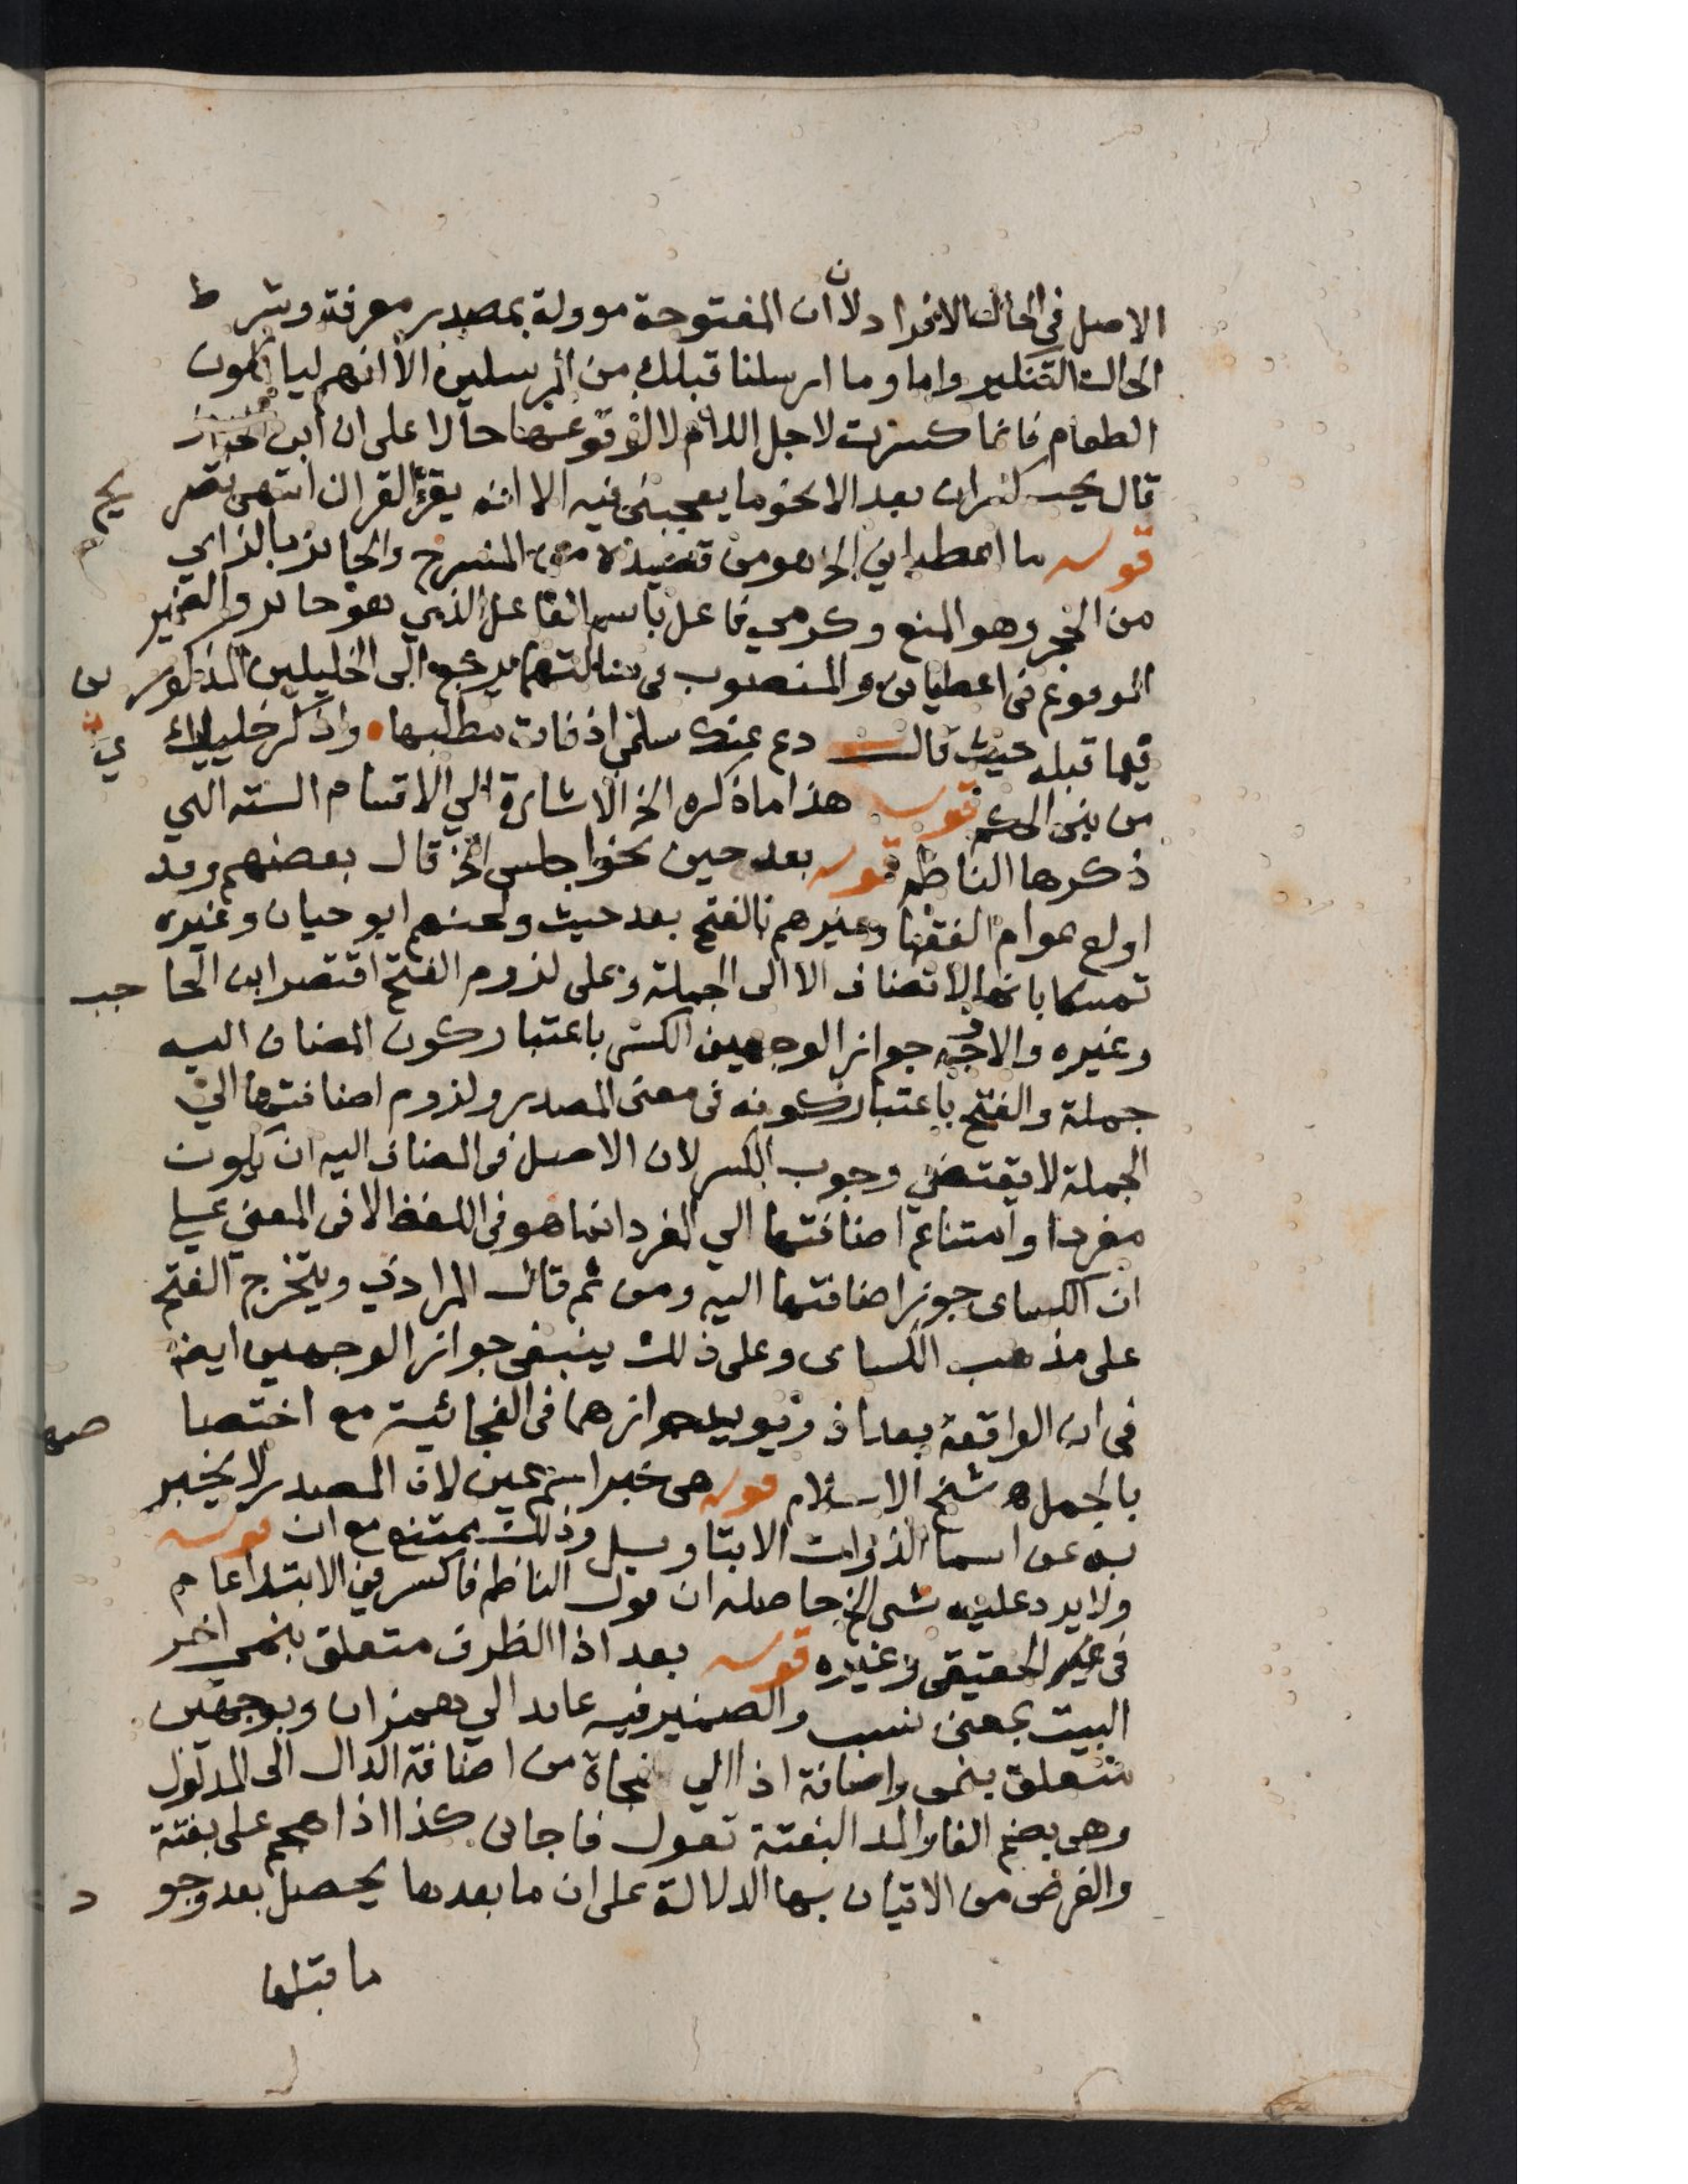 الاصل في الحال الافراد ولان ان المفتوحة موولة بمصدر معرفة وشرط
الحال التنكير واما وما ارسلنا قبلك من المرسلين الا انهم لياكلون
الطعام فانما كسرت لاجل اللام لا لوقوعها حالا على ان ابن
قال يجب كسر ان بعد الا نحو ما يعجبني فيه الا انه يقرؤ القران انتهى
قوله ما اعطياني الخ هو من قصيدة من المنسرح والحاجز بالزاي
من الحجز وهو المنع وكرمي فاعل باسم الفاعل الذي هو حاجز والضمير
المرفوع في اعطياني والمنصوب في سالتهما يرجع الى الخليلين المذكورين
فيما قبله حيث قال دع عنك سلمى اذ فات مطلبها واذكر خليليك
من بني الحكم قوله هذا ما ذكره الخ الاشارة الي الاقسام الستة التي
ذكرها الناظم قوله بعد حيث نحو اجلس الخ قال بعضهم وقد
اولع عوام الفقها وغيرهم بالفتح بعد حيث ولحنهم ابو حيان وغيره
تمسكا بانها لا تضاف الا الى الجملة وعلى لزوم الفتح اقتصر ابن الحاجب
وغيره والاوجه جواز الوجهين الكسر باعتبار كون المضاف اليه
جملة والفتح باعتبار كونه في معنى المصدر ولزوم اضافتها الي
الجملة لا يقتضي وجوب الكسر لان الاصل في المضاف اليه ان يكون
مفردا وامتناع اضافتها الي المفرد انما هو في اللفظ لا في المعني علي
ان الكساى جوز اضافتها اليه ومن ثم قال المرادي ويتخرج الفتح
على مذهب الكساى وعلى ذلك ينبغي جواز الوجهين ايضا
في ان الواقعة بعد اذ ويويد جوازهما في الفجائية مع اختصاصها
بالجمل اه شيخ الاسلام قوله هي خبر اسم عين لان المصدر لا يخبر
به عن اسما الذوات الا بتاويل وذلك يمتنع مع ان قوله
ولا يرد عليه شي الخ حاصله ان قول الناظم فاكسر في الابتدا عام
في الحقيقي وغيره قوله بعد اذا الظرف متعلق بنمي اخر
البيت بمعنى نسب والضمير فيه عايد الي همز ان وبوجهين
متعلق بنمى واضافة اذا الي فجاة من اضافة الدال الى المدلول
وهي بضم الفا والمد البغتة تقول فاجاني كذا اذا هجم على بغتة
والغرض من الاتيان بها الدلالة على ان ما بعدها يحصل بعد وجود
ما قبلها